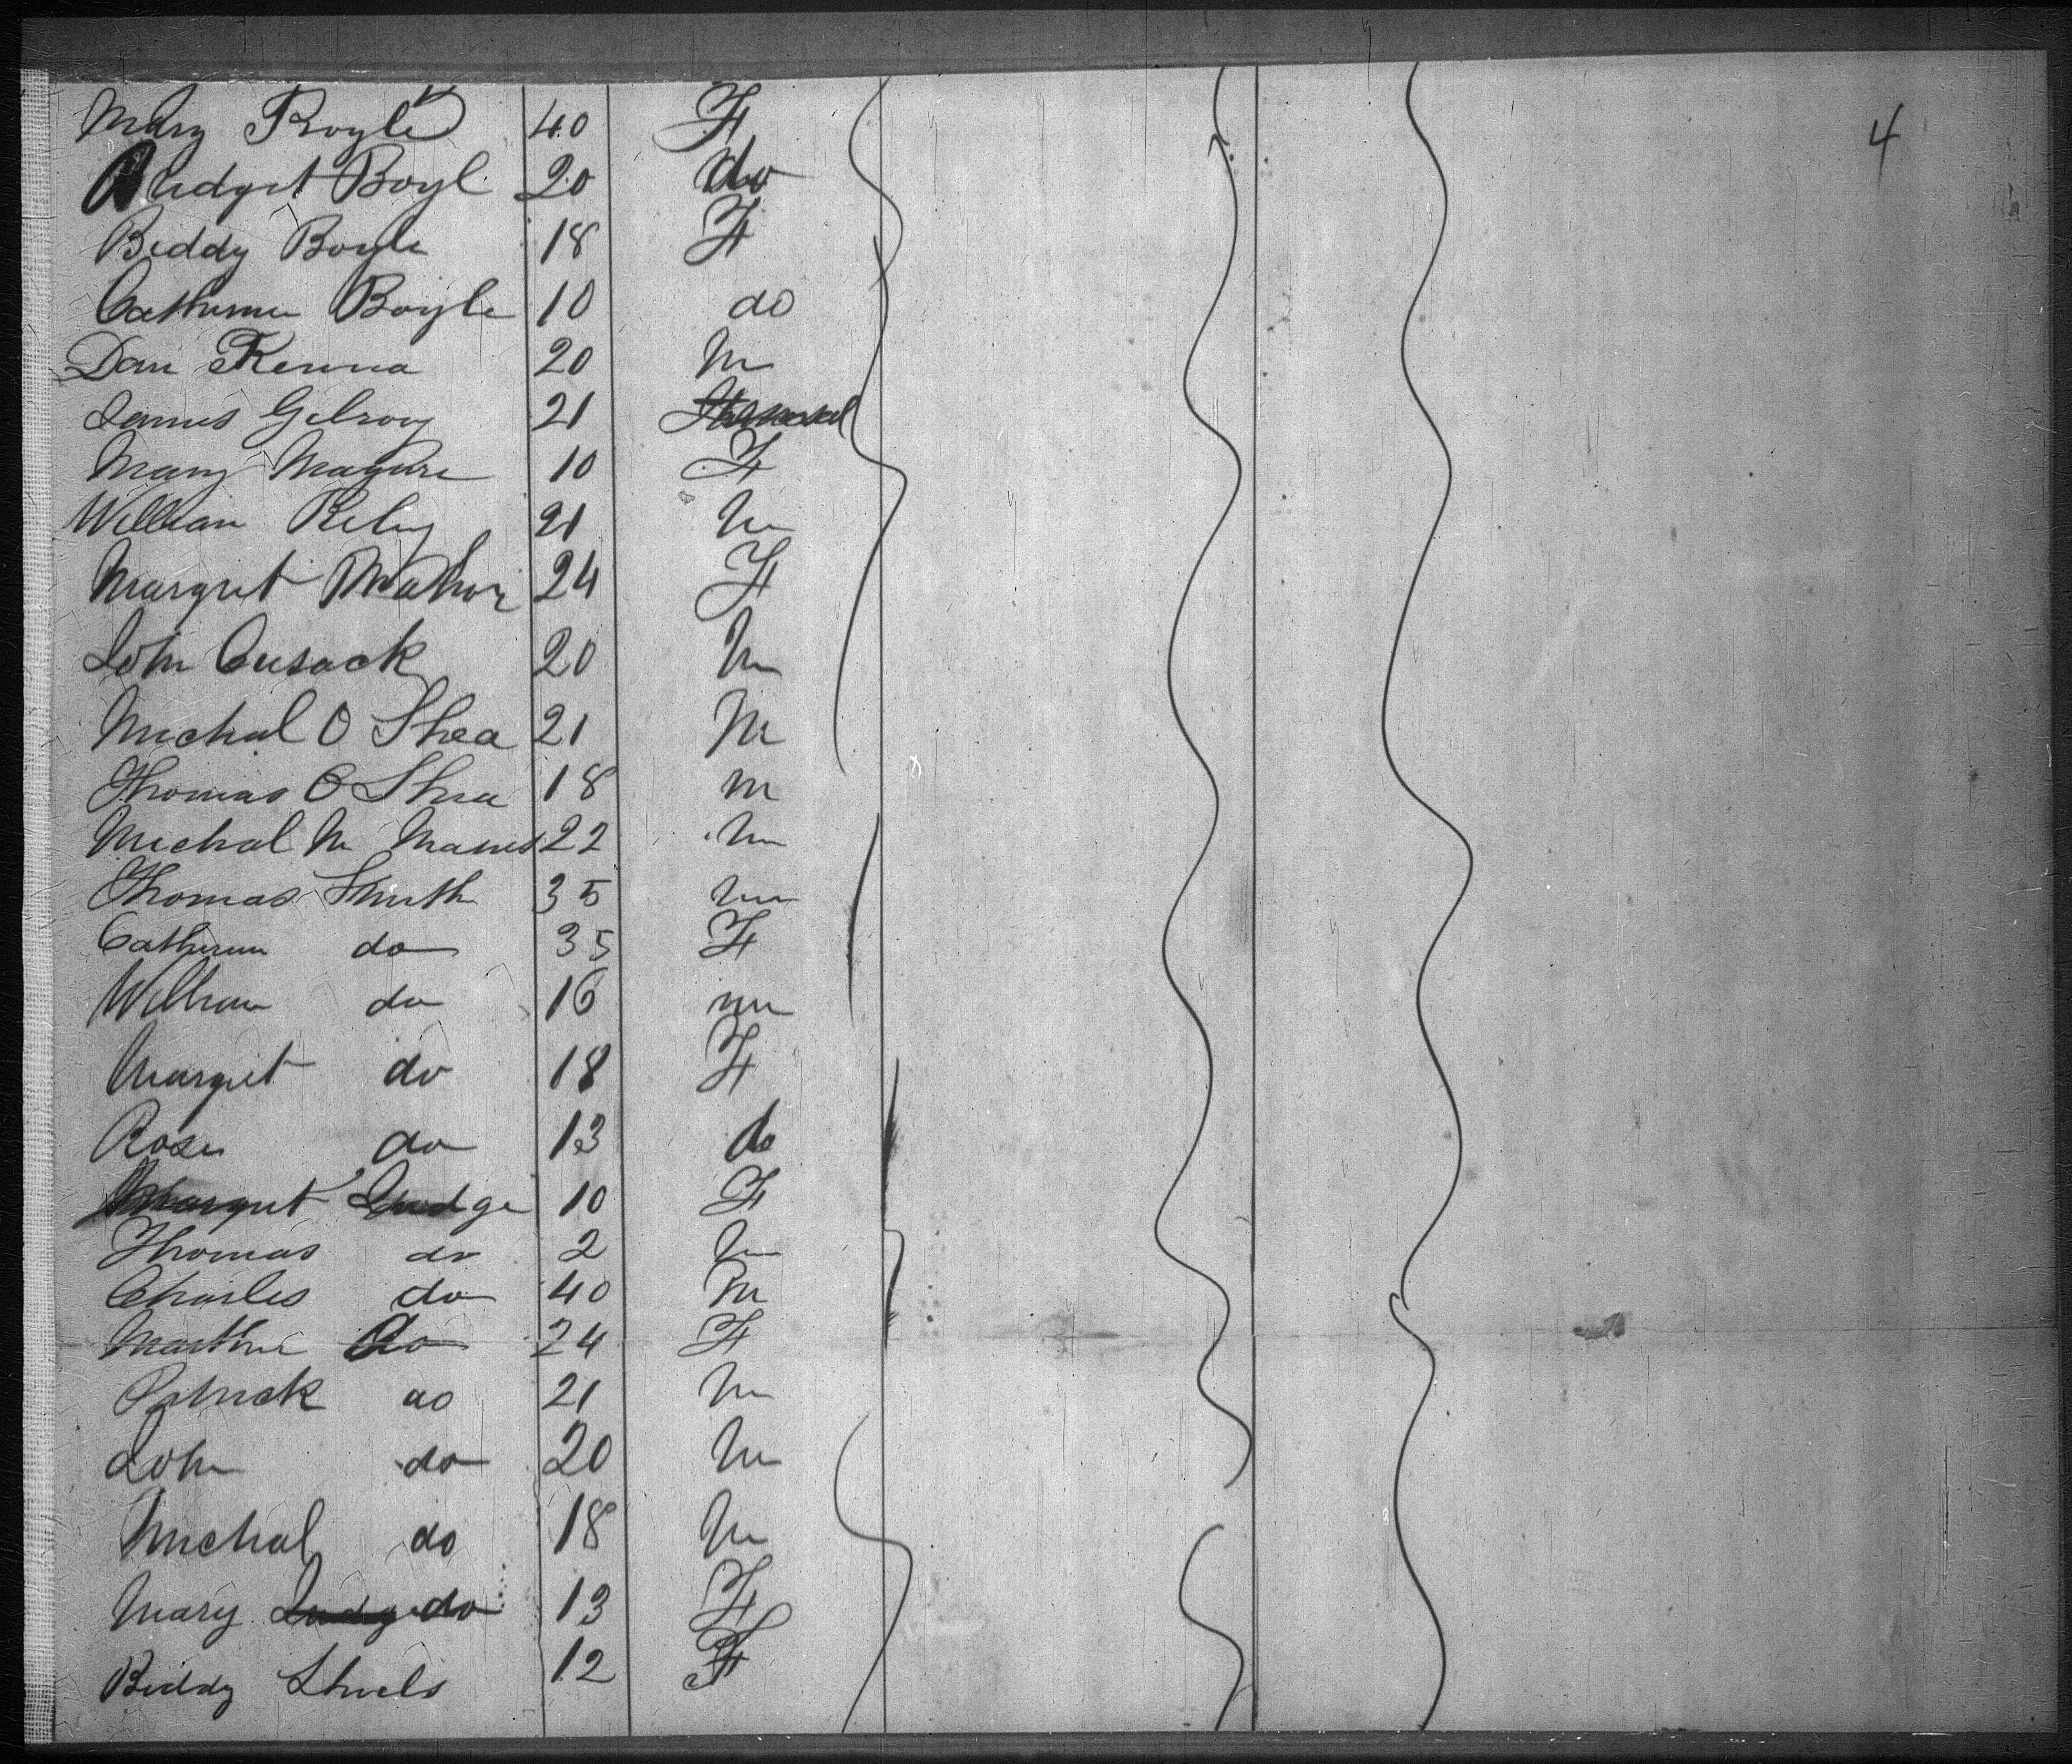 4
Mary Boyle 40 F
Bridget Boyl 20 do
Biddy Boyle 18 F
Catherine Boyle 10 do
Dan Kenna 20 M
James Gilroy 21
Mary Maguire 10 F
William Reley 21 M
Margret Mahon 24 F
John Cusack 20 M
Michal O Shea 21 M
Thomas O Shea 18 m
Michal M Manus 22 M
Thomas Smith 35 m
Catherine do 35 F
William do 16 m
Margret do 18 F
Rose do 13 do
Margret Judge 10 F
Thomas do 2 M
Charles do 40 M
Martha do 24 F
Patrick do 21 M
John do 20 M
Michal do 18 M
Mary Judge do 13 F
Biddy Shiels 12 F